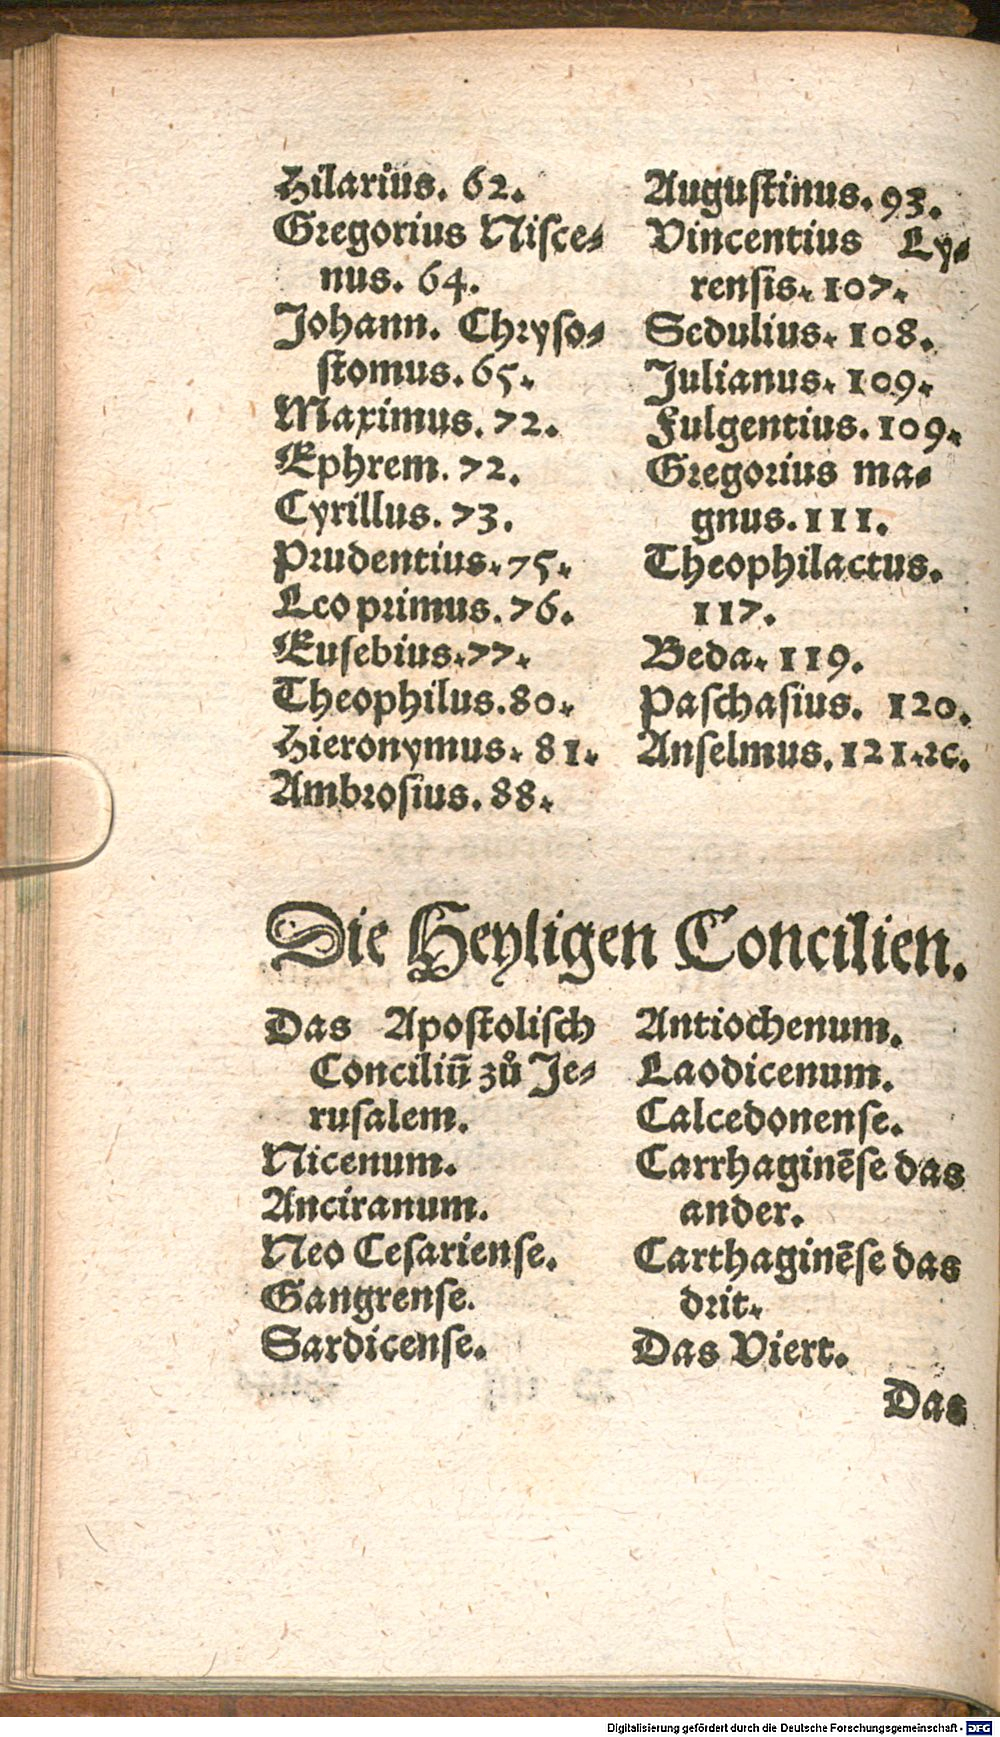 Hilarius. 62.
Gregorius Niſce⸗
nus. 64.
Johann. Chryſo⸗
ſtomus. 65.
Maximus. 72.
Ephrem. 72.
Cyrillus. 73.
Prudentius. 75.
Leo primus. 76.
Euſebius. 77.
Theophilus. 80.
Hieronymus. 81.
Ambroſius. 88.
Auguſtinus. 93.
Vincentius Ly⸗
renſis. 107.
Sedulius. 108.
Julianus. 109.
Fulgentius. 109.
Gregorius ma⸗
gnus. 111.
Theophilactus.
117.
Beda. 119.
Paſchaſius. 120.
Anſelmus. 121.ꝛc.
Die Heyligen Concilien.
Das Apoſtoliſch
Conciliū zů Je⸗
ruſalem.
Nicenum.
Anciranum.
Neo Ceſarienſe.
Gangrenſe.
Sardicenſe.
Antiochenum.
Laodicenum.
Calcedonenſe.
Carrhaginēſe das
ander.
Carthaginēſe das
drit.
Das Viert.
Das
Digitalisierung gefördert durch die Deutsche Forschungsgemeinschaft - DFG